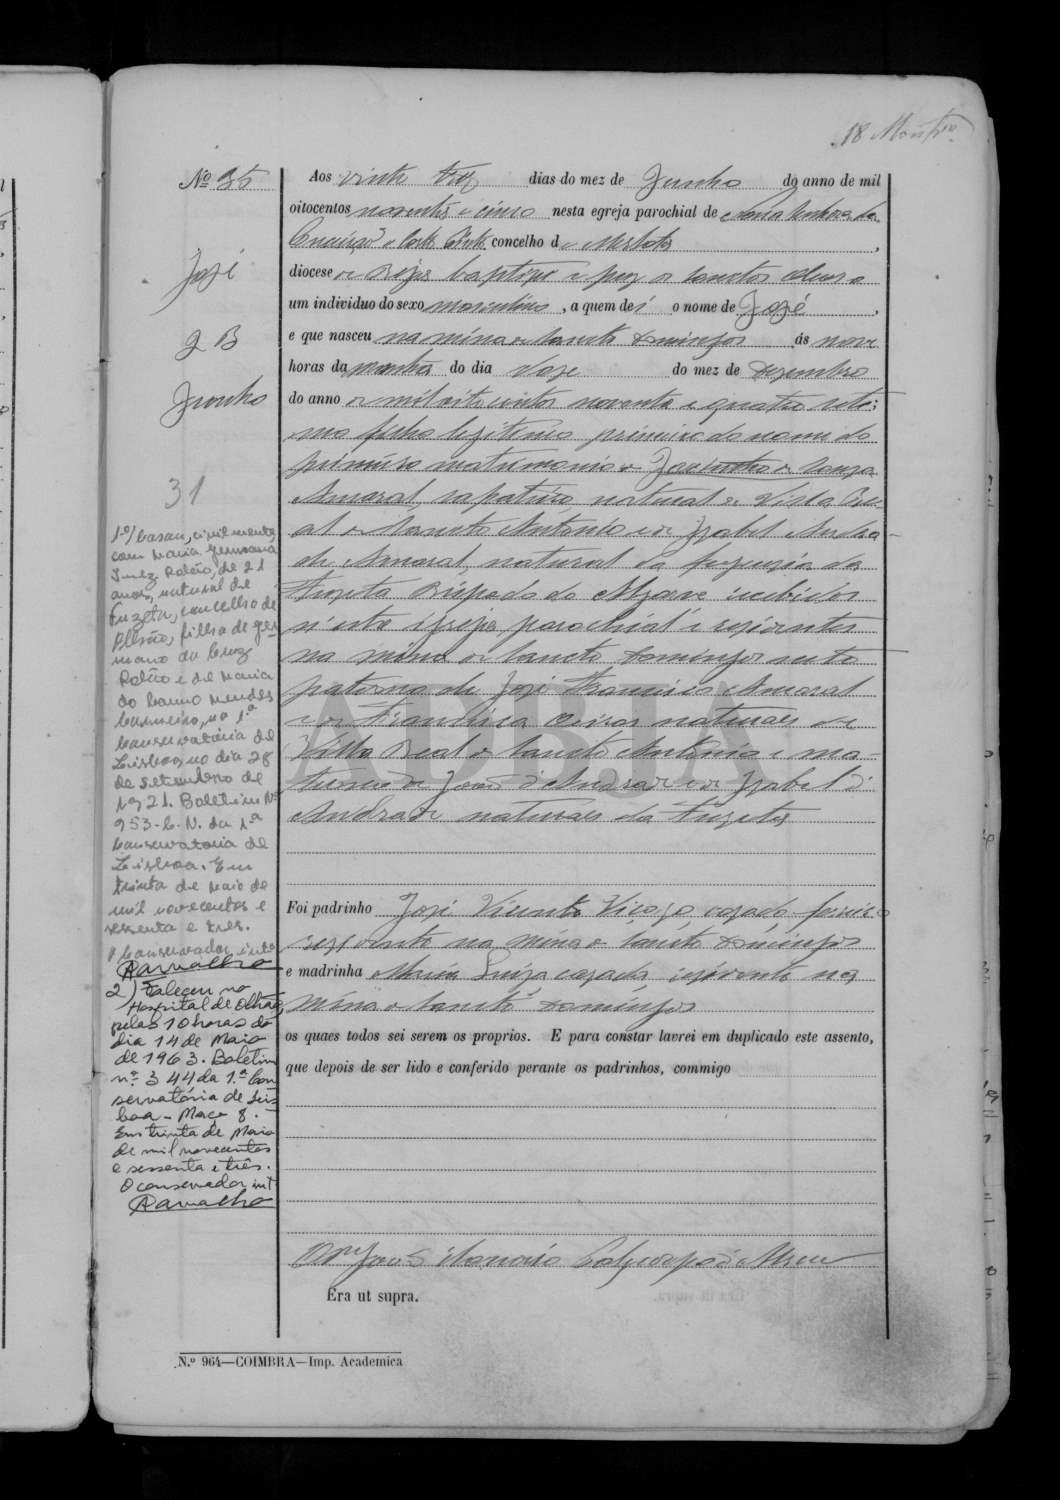 18
Nº 35
José
2 B
Junho
31
Aos vinte tres dias do mez de Junho do anno de mil
oitocentos noventa e cinco nesta egreja parochial de Nossa Senhora da
Conceição e Corte Pinto concelho de Mertola,
diocese de Beja baptizei e puz os sanctos oleos a
um individuo do sexo masculino, a quem dei o nome de José,
e que nasceu na mina de Sancto Domingos ás nove
horas da manhã do dia doze do mez de Dezembro
do anno de mil oito centos noventa e quatro
filho legitimo primeiro do nome do
primeiro matrimonio de de Souza
Amaral, sapateiro, natural de Villa Re-
al de Sancto Antonio e de Izabel Andra-
de Amaral, natural da freguezia da
Fuzeta Bispado do Algarve recebidos
n'esta egreja parochial e residentes
na mina de Sancto Domingos neto
paterno de José Francisco Amaral
e de Francisca naturaes de
Villa Real de Sancto Antonio e ma-
terno de João d'Andrade e de Izabel d'
Andrade naturaes da Fuzeta
Foi padrinho José Vicente casado,
residente na mina de Sancto Domingos
e madrinha Maria Luiza casada, residente na
mina de Sancto Domingos
os quaes todos sei serem os proprios. E para constar lavrei em duplicado este assento,
que depois de ser lido e conferido perante os padrinhos, commigo
Era ut supra.
1.º) Casou, civilmente,
com Maria Germana
Inez Rolão, de 21
anos, natural de
Fuzeta, concelho de
Olhão, filha de Ger
mano da Cruz
Rolão e de Maria
do Carmo Mendes
na 1.ª
Conservatória de
Lisboa, no dia 28
de setembro de
1921. Boletim Nº
953-C.N. da 1.ª
Conservatoria de
Lisboa. Em
trinta de Maio de
mil novecentos e
sessenta e tres.
O Conservador, intº
Ramalho
2) Faleceu no
Hospital de Olhão,
pelas 10 horas do
dia 14 de Maio
de 1963. Boletim
n.º 344 da 1.ª Con
servatória de Lis
boa - Maço 8. -
Em trinta de Maio
de mil novecentos
e sessenta e três.
O conservador, int
Ramalho
N.º 964—COIMBRA—Imp. Academica
ADBJA